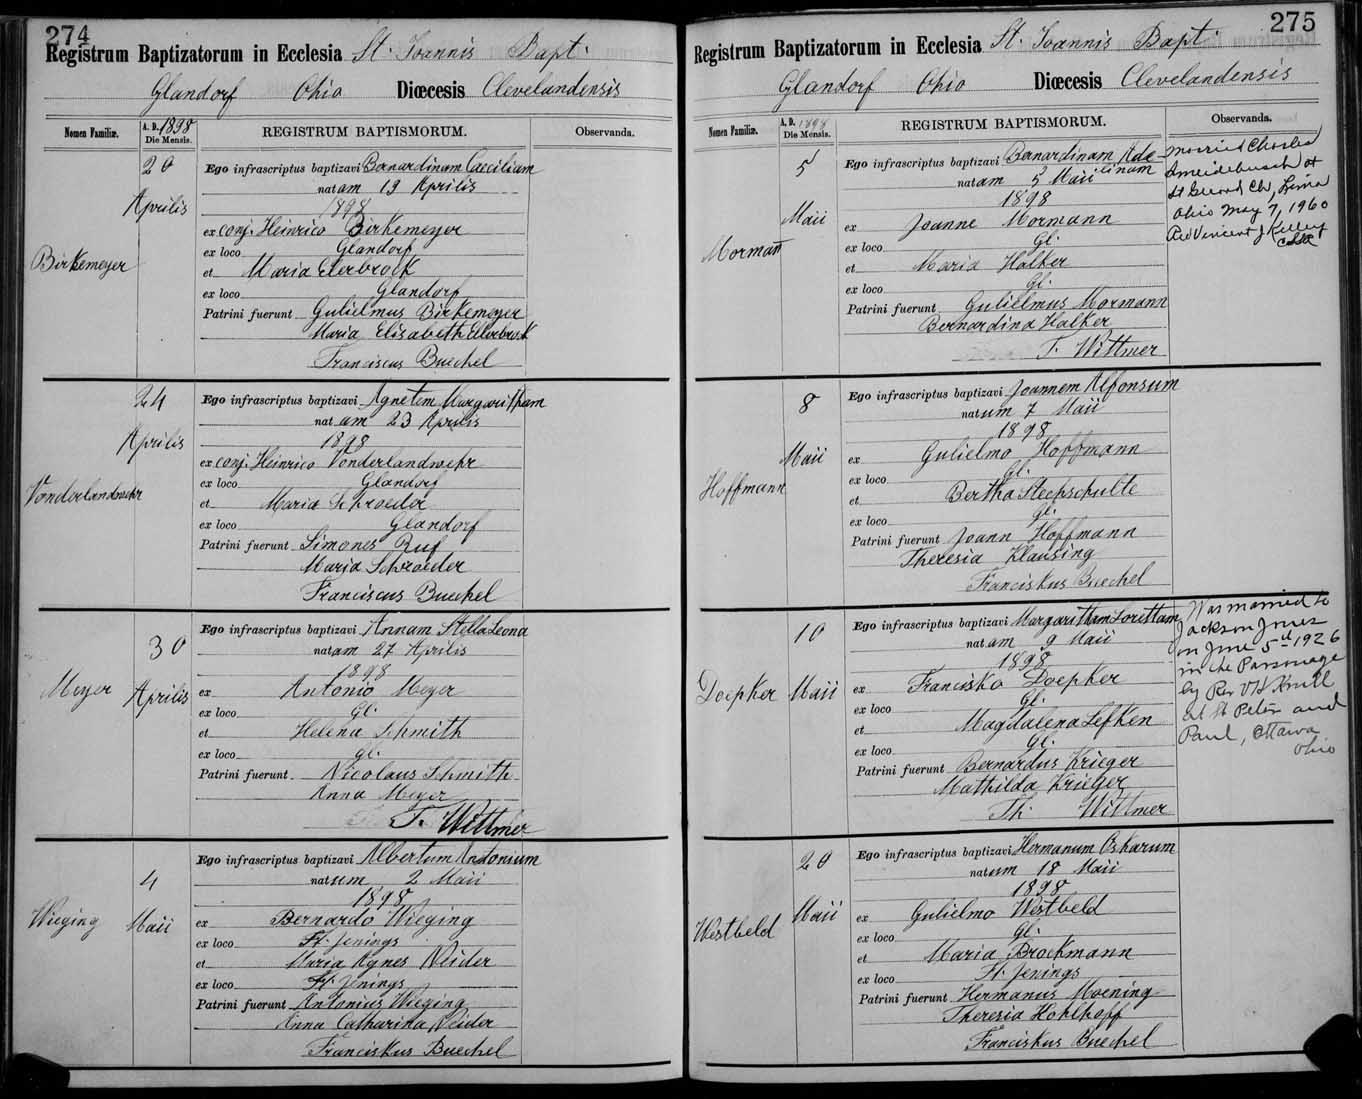 274
Registrum Baptizatorum in Ecclesia St. Joannis Bapt.
Glandorf Ohio Diœcesis Clevelandensis
Nomen Familiæ.
A. D. 1898
Die Mensis.
REGISTRUM BAPTISMORUM.
Observanda.
Birkemeyer
20
Aprilis
Ego infrascriptus baptizavi Bernardinam Caeciliam
natam 19 Aprilis
1898
ex conj. Heinrico Birkemeyer
ex loco Glandorf
et Maria Ellerbrock
ex loco Glandorf
Patrini fuerunt Gulielmus Birkemeyer
Maria Elisabeth Ellerbrock
Franciscus Buechel
Vonderlandwehr
24
Aprilis
Ego infrascriptus baptizavi Agnetem Margaritham
natam 23 Aprilis
1898
ex conj. Heinrico Vonderlandwehr
ex loco Glandorf
et Maria Schroeder
ex loco Glandorf
Patrini fuerunt Simones Ruf
Maria Schroeder
Franciscus Buechel
Meyer
30
Aprilis
Ego infrascriptus baptizavi Annam Stella Leona
natam 27 Aprilis
1898
ex Antonio Meyer
ex loco Gl.
et Helena Schmith
ex loco Gl.
Patrini fuerunt Nicolaus Schmith
Anna Meyer
T. Wittmer
Wieging
4
Maii
Ego infrascriptus baptizavi Albertum Antonium
natum 2 Maii
1898
ex Bernardo Wieging
ex loco Ft. Jenings
et Maria Agnes Neider
ex loco Ft. Jenings
Patrini fuerunt Antonius Wieging
Anna Catharina Neider
Franciskus Buechel
275
Registrum Baptizatorum in Ecclesia St. Joannis Bapt.
Glandorf Ohio Diœcesis Clevelandensis
Nomen Familiæ.
A. D. 1898
Die Mensis.
REGISTRUM BAPTISMORUM.
Observanda.
Mormann
5
Maii
Ego infrascriptus baptizavi Bernardinam Ade-
linam
natam 5 Maii
1898
ex Joanne Mormann
ex loco Gl.
et Maria Halker
ex loco Gl.
Patrini fuerunt Gulielmus Mormann
Bernardina Halker
T. Wittmer
Married Charles
Smeidebusch at
St Gerard Ch, Lima
Ohio May 7, 1960
Rev Vincent J Kelley
Hoffmann
8
Maii
Ego infrascriptus baptizavi Joannem Alfonsum
natum 7 Maii
1898
ex Gulielmo Hoffmann
ex loco Gl.
et Bertha Stechschulte
ex loco Gl.
Patrini fuerunt Joann Hoffmann
Theresia Klausing
Franciskus Buechel
Doepker
10
Maii
Ego infrascriptus baptizavi Margaritham Lorittam
natam 9 Maii
1898
ex Francisko Doepker
ex loco Gl.
et Magdalena Lefken
ex loco Gl.
Patrini fuerunt Bernardus Krieger
Mathilda Krieger
Th. Wittmer
Was married to
Jackson Jones
on June 5th 1926
in the Parsonage
by Rev
at St Peter and
Paul, Ottawa
Ohio
Westbeld
20
Maii
Ego infrascriptus baptizavi Hermanum Oskarum
natum 18 Maii
1898
ex Gulielmo Westbeld
ex loco Gl.
et Maria Brockmann
ex loco Ft. Jenings
Patrini fuerunt Hermanus Moening
Theresia Kohlhoff
Franciskus Buechel